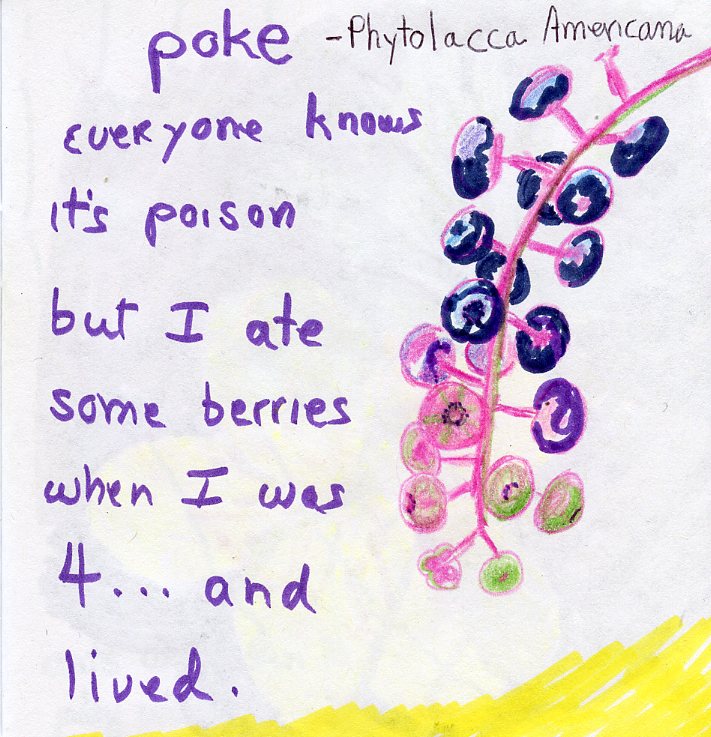 poke - Phytolacca Americana
everyone knows
it's poison
but I ate
some berries
when I was
4... and
lived.